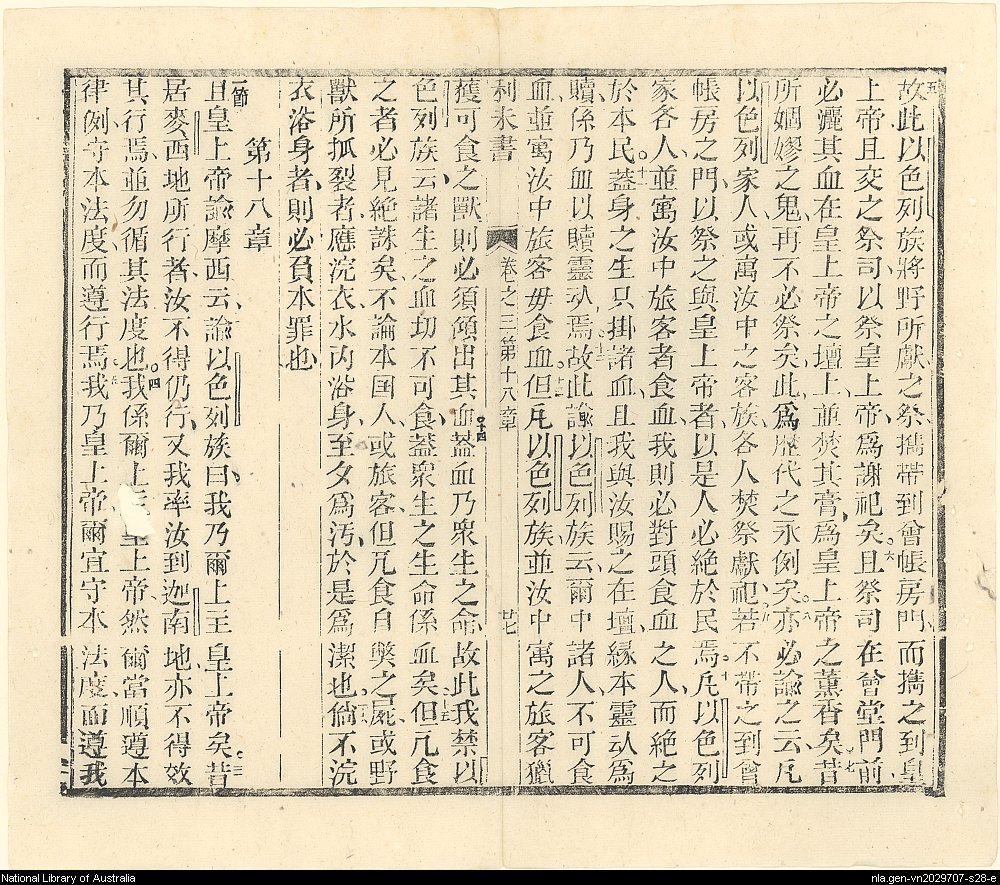 五
故此以色列族將野所獻之祭、攜帶到會帳房門而攜之到皇
上帝且交之祭司以祭皇上帝、爲謝祀矣。六且祭司在會堂門前
必灑其血在皇上帝之壇上、並焚其膏爲皇上帝之薰香矣。七昔
所姻嫪之鬼、再不必祭矣、此爲歷代之永例矣。八亦必諭之云、凡
以色列家人、或寓汝中之客族、各人焚祭獻祀、九若不帶之到會
帳房之門、以祭之與皇上帝者、以是人必絕於民焉。十凡以色列
家各人、並寓汝中旅客者食血、我則必對頭食血之人、而絕之
於本民。十一蓋身之生只掛諸血、且我與汝賜之在壇、緣本靈㓜爲
贖、係乃血以贖靈㓜焉。十二故此諭以色列族云、爾中諸人、不可食
血、並寓汝中旅客毋食血。十三但凡以色列族、並汝中寓之旅客、獵
利未書 卷之三 第十八章 廿七
獲可食之獸、則必須傾出其血。十四蓋血乃衆生之命、故此我禁以
色列族云、諸生之血切不可食、蓋衆生之生命係血矣。十五但凡食
之者必見絕誅矣、不論本国人、或旅客、但凡食自斃之屍、或野
獸所抓裂者、應浣衣、水內浴身、至夕爲污、於是爲潔也。十六倘不浣
衣浴身者、則必負本罪也、
第十八章
一節
且皇上帝諭摩西云、二諭以色列族曰、我乃爾上主皇上帝矣。三昔
居麥西地所行者、汝不得仍行、又我率汝到迦南地、亦不得效
其行焉、並勿循其法度也。四我係爾上主皇上帝、然爾當順遵本
律例、守本法度而遵行焉。五我乃皇上帝、爾宜守本法度、而遵我
National Library of Australia
nla.gen-vn2029707-s28-e